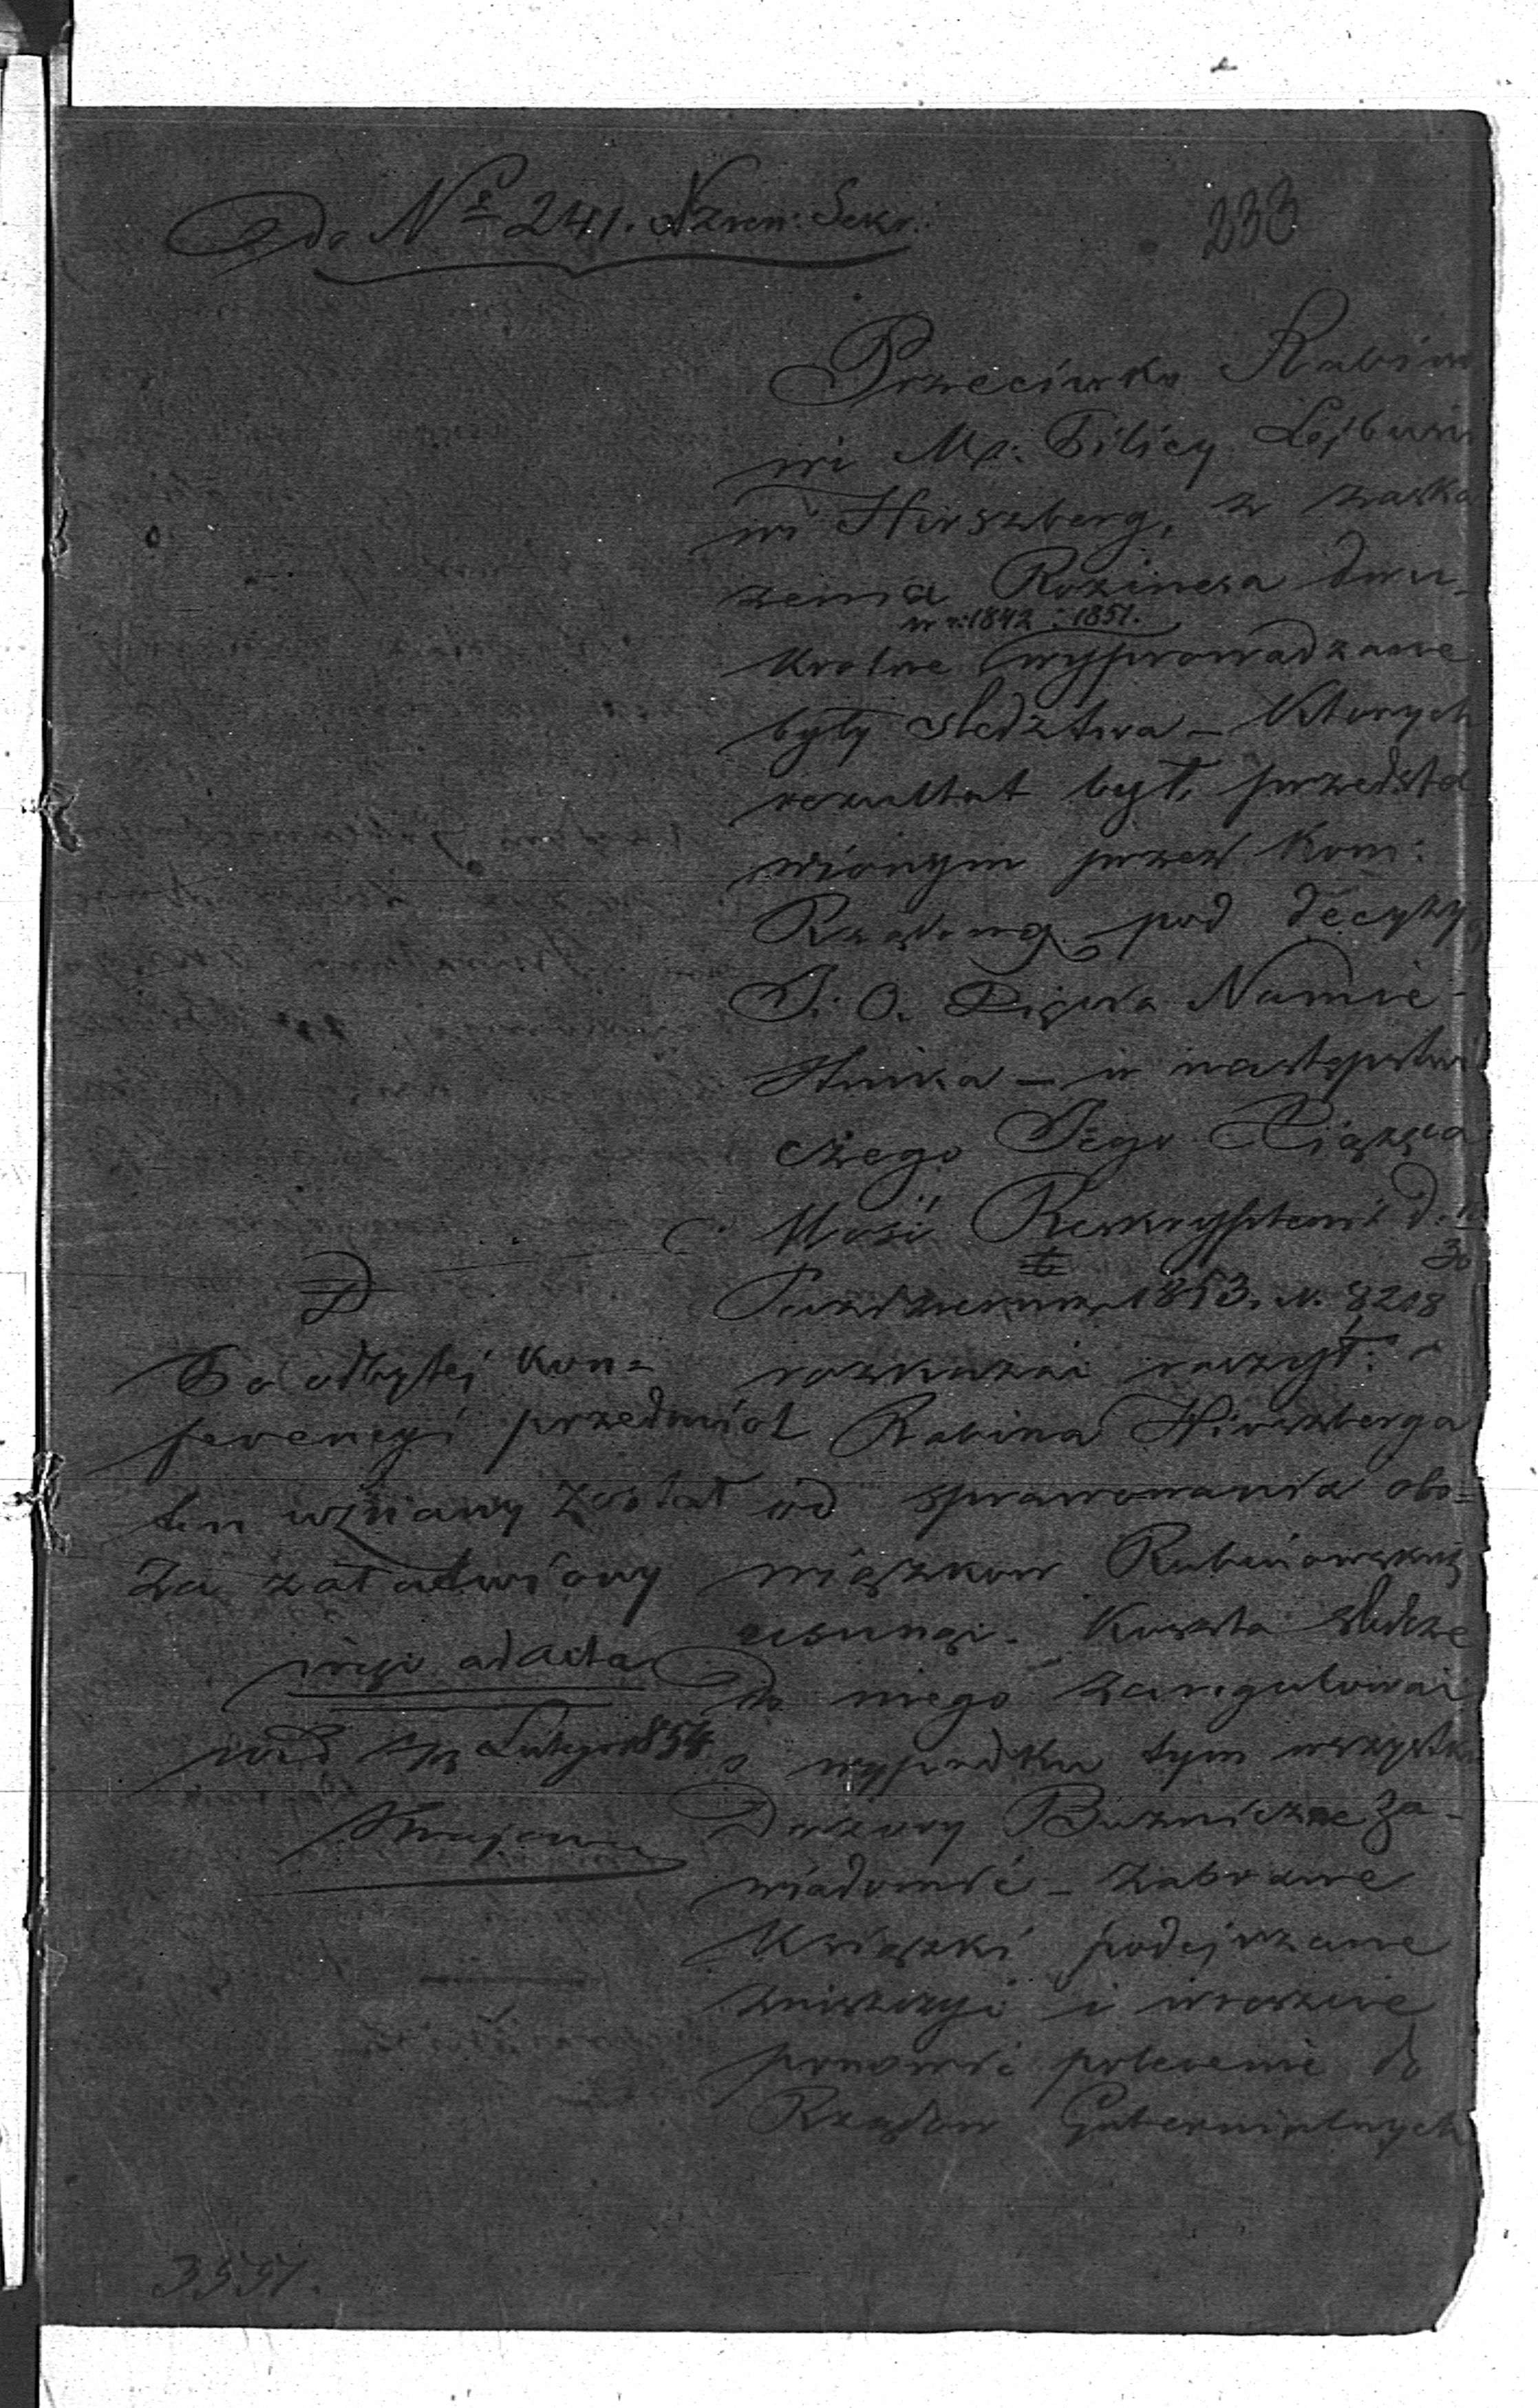 Do No 241. Dzien: Sekr:
233
Przeciwko Rabino
wi M. Pilicy Lejbusio
wi Hirszberg, z zaska
rzenia Rozinesa dwu-
w r: 1842 : 1851.
krotne wyprowadzane
były śledztwa – których
rezultat był, przedsta
wionym przez Kom:
Rządową pod decyzyą
J. O. Xięcia Namie-
stnika – w następstwie
czego Jego Xiążęca
Mość Reskryptem z d. 18/30
Października 1853. N. 8218
rozkazać raczył:
Rabina Hirszberga
od sprawowania obo=
wiązków Rabinowskich
usunąć. Koszta śledcze
do niego zaregulować
o wypadku tym wszystkie
Dozory Bóżnicze za-
wiadomić – zabrane
książki podejrzane
zniszczyć i wreszcie
ponowić polecenie do
Rządów Gubernialnych
Po odbytej kon=
ferencyi przedmiot
ten uznany został
za załatwiony
więc ad acta
Lutego 1854
3551.